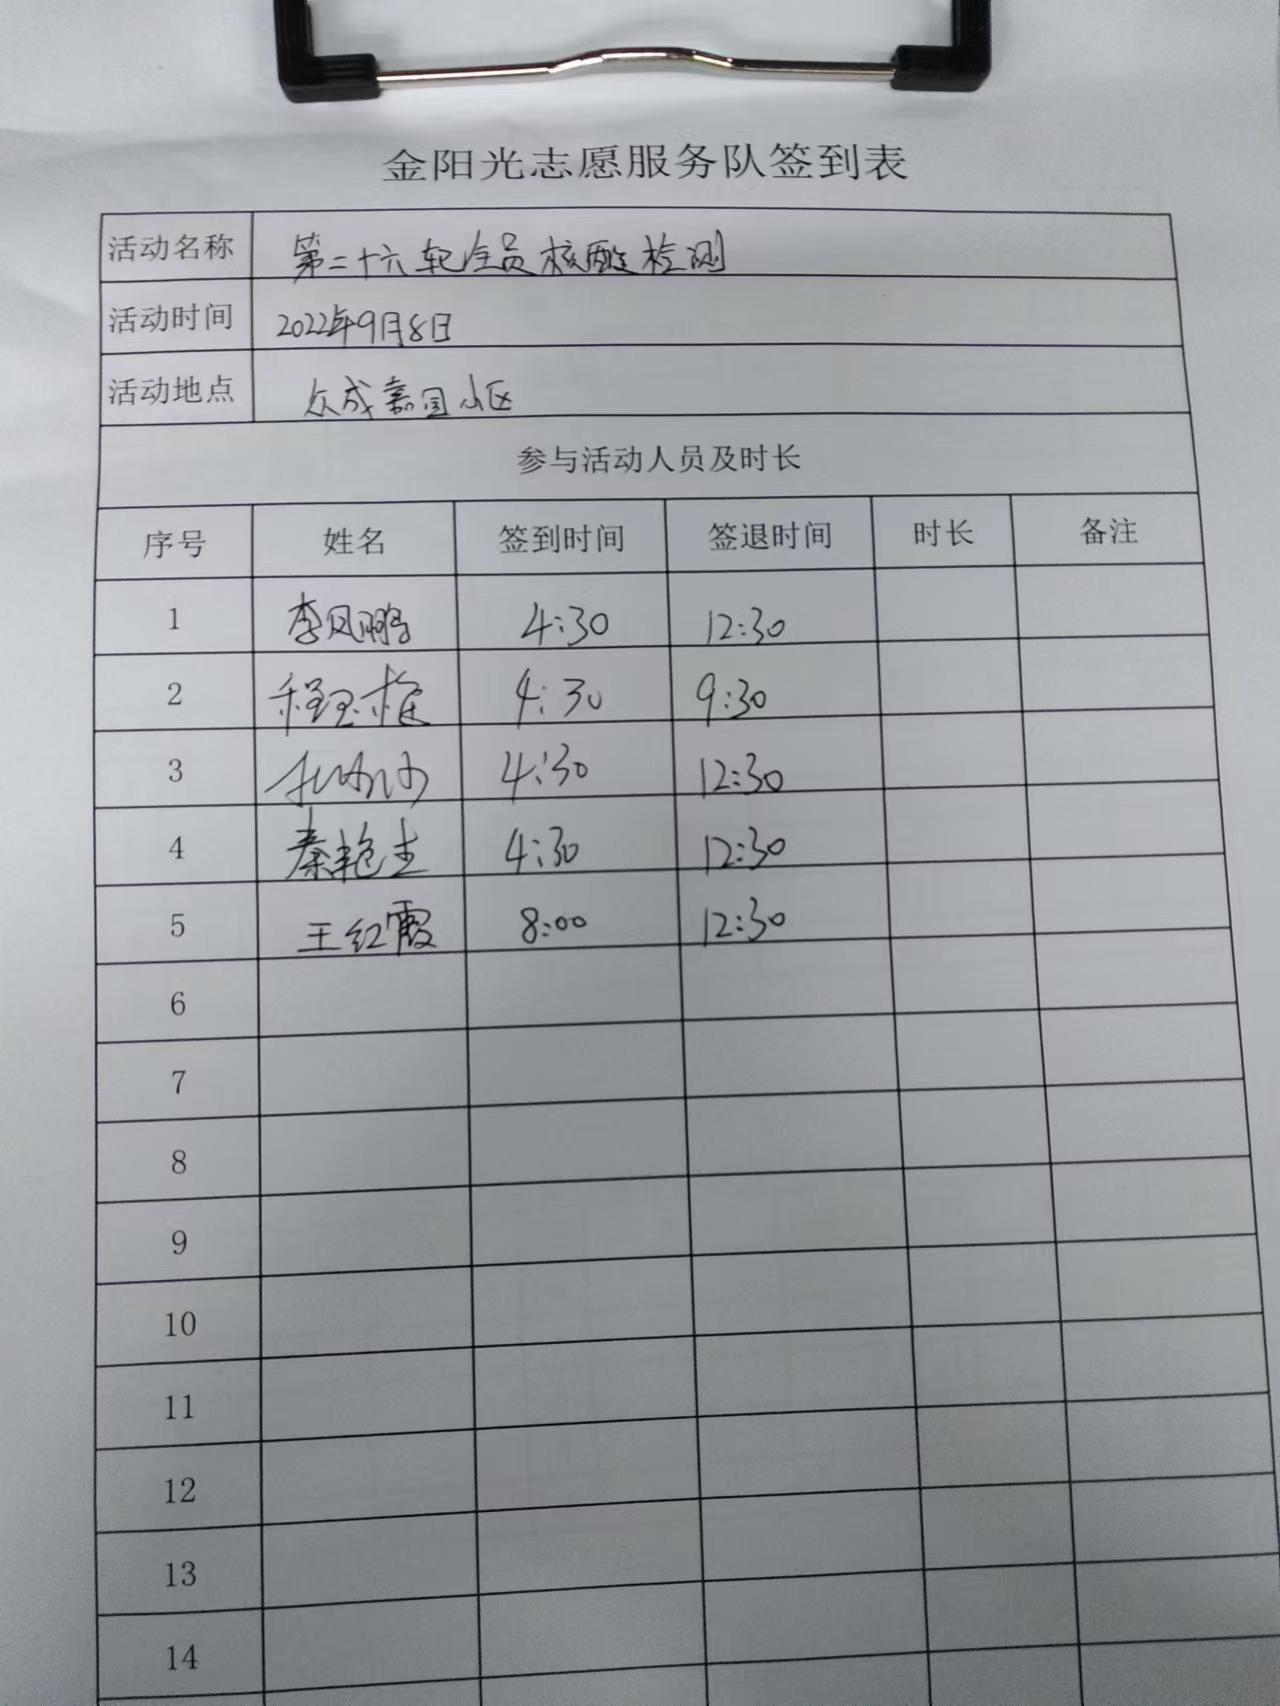 金阳光志愿服务队签到表
活动名称 第二十六轮全员核酸检测
活动时间 2022年9月8日
活动地点 众成嘉园小区
参与活动人员及时长
序号 姓名 签到时间 签退时间 时长 备注
1 李凤鹏 4:30 12:30
2 4:30 9:30
3 4:30 12:30
4 秦艳生 4:30 12:30
5 王红霞 8:00 12:30
6
7
8
9
10
11
12
13
14